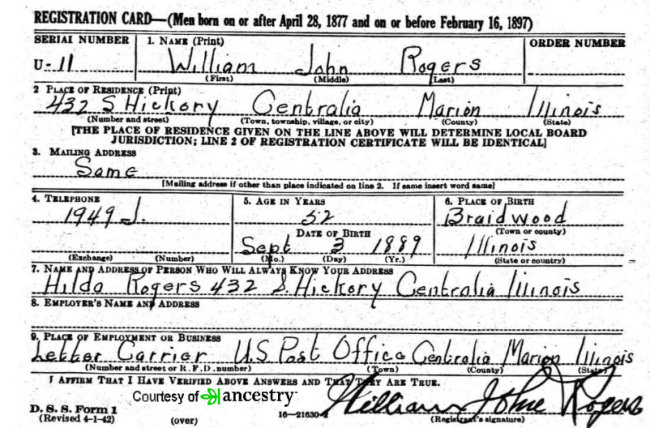 REGISTRATION CARD—(Men born on or after April 28, 1877 and on or before February 16, 1897)
SERIAL NUMBER 1. NAME (Print) ORDER NUMBER
U-11 William John Rogers
(First) (Middle) (Last)
2 PLACE OF RESIDENCE (Print)
432 S Hickory Centralia Marion Illinois
(Number and street) (Town, township, village, or city) (County) (State)
[THE PLACE OF RESIDENCE GIVEN ON THE LINE ABOVE WILL DETERMINE LOCAL BOARD
JURISDICTION; LINE 2 OF REGISTRATION CERTIFICATE WILL BE IDENTICAL]
3. MAILING ADDRESS
Same
[Mailing address if other than place indicated on line 2. If same insert word same]
4. TELEPHONE 5. AGE IN YEARS 6. PLACE OF BIRTH
1949 J. 52 Braidwood
DATE OF BIRTH (Town or county)
Sept 3 1889 Illinois
(Exchange) (Number) (Mo.) (Day) (Yr.) (State or country)
7. NAME AND ADDRESS OF PERSON WHO WILL ALWAYS KNOW YOUR ADDRESS
Hilda Rogers 432 S. Hickory Centralia Illinois
8. EMPLOYER'S NAME AND ADDRESS
9. PLACE OF EMPLOYMENT OR BUSINESS
Letter Carrier U.S Post Office Centralia Marion Illinois
(Number and street or R. F. D. number) (Town) (County) (State)
I AFFIRM THAT I HAVE VERIFIED ABOVE ANSWERS AND THAT THEY ARE TRUE.
Courtesy of ancestry
William John Rogers
D. S. S. Form 1
(Revised 4-1-42) (over) 16—21630-2 (Registrant's signature)